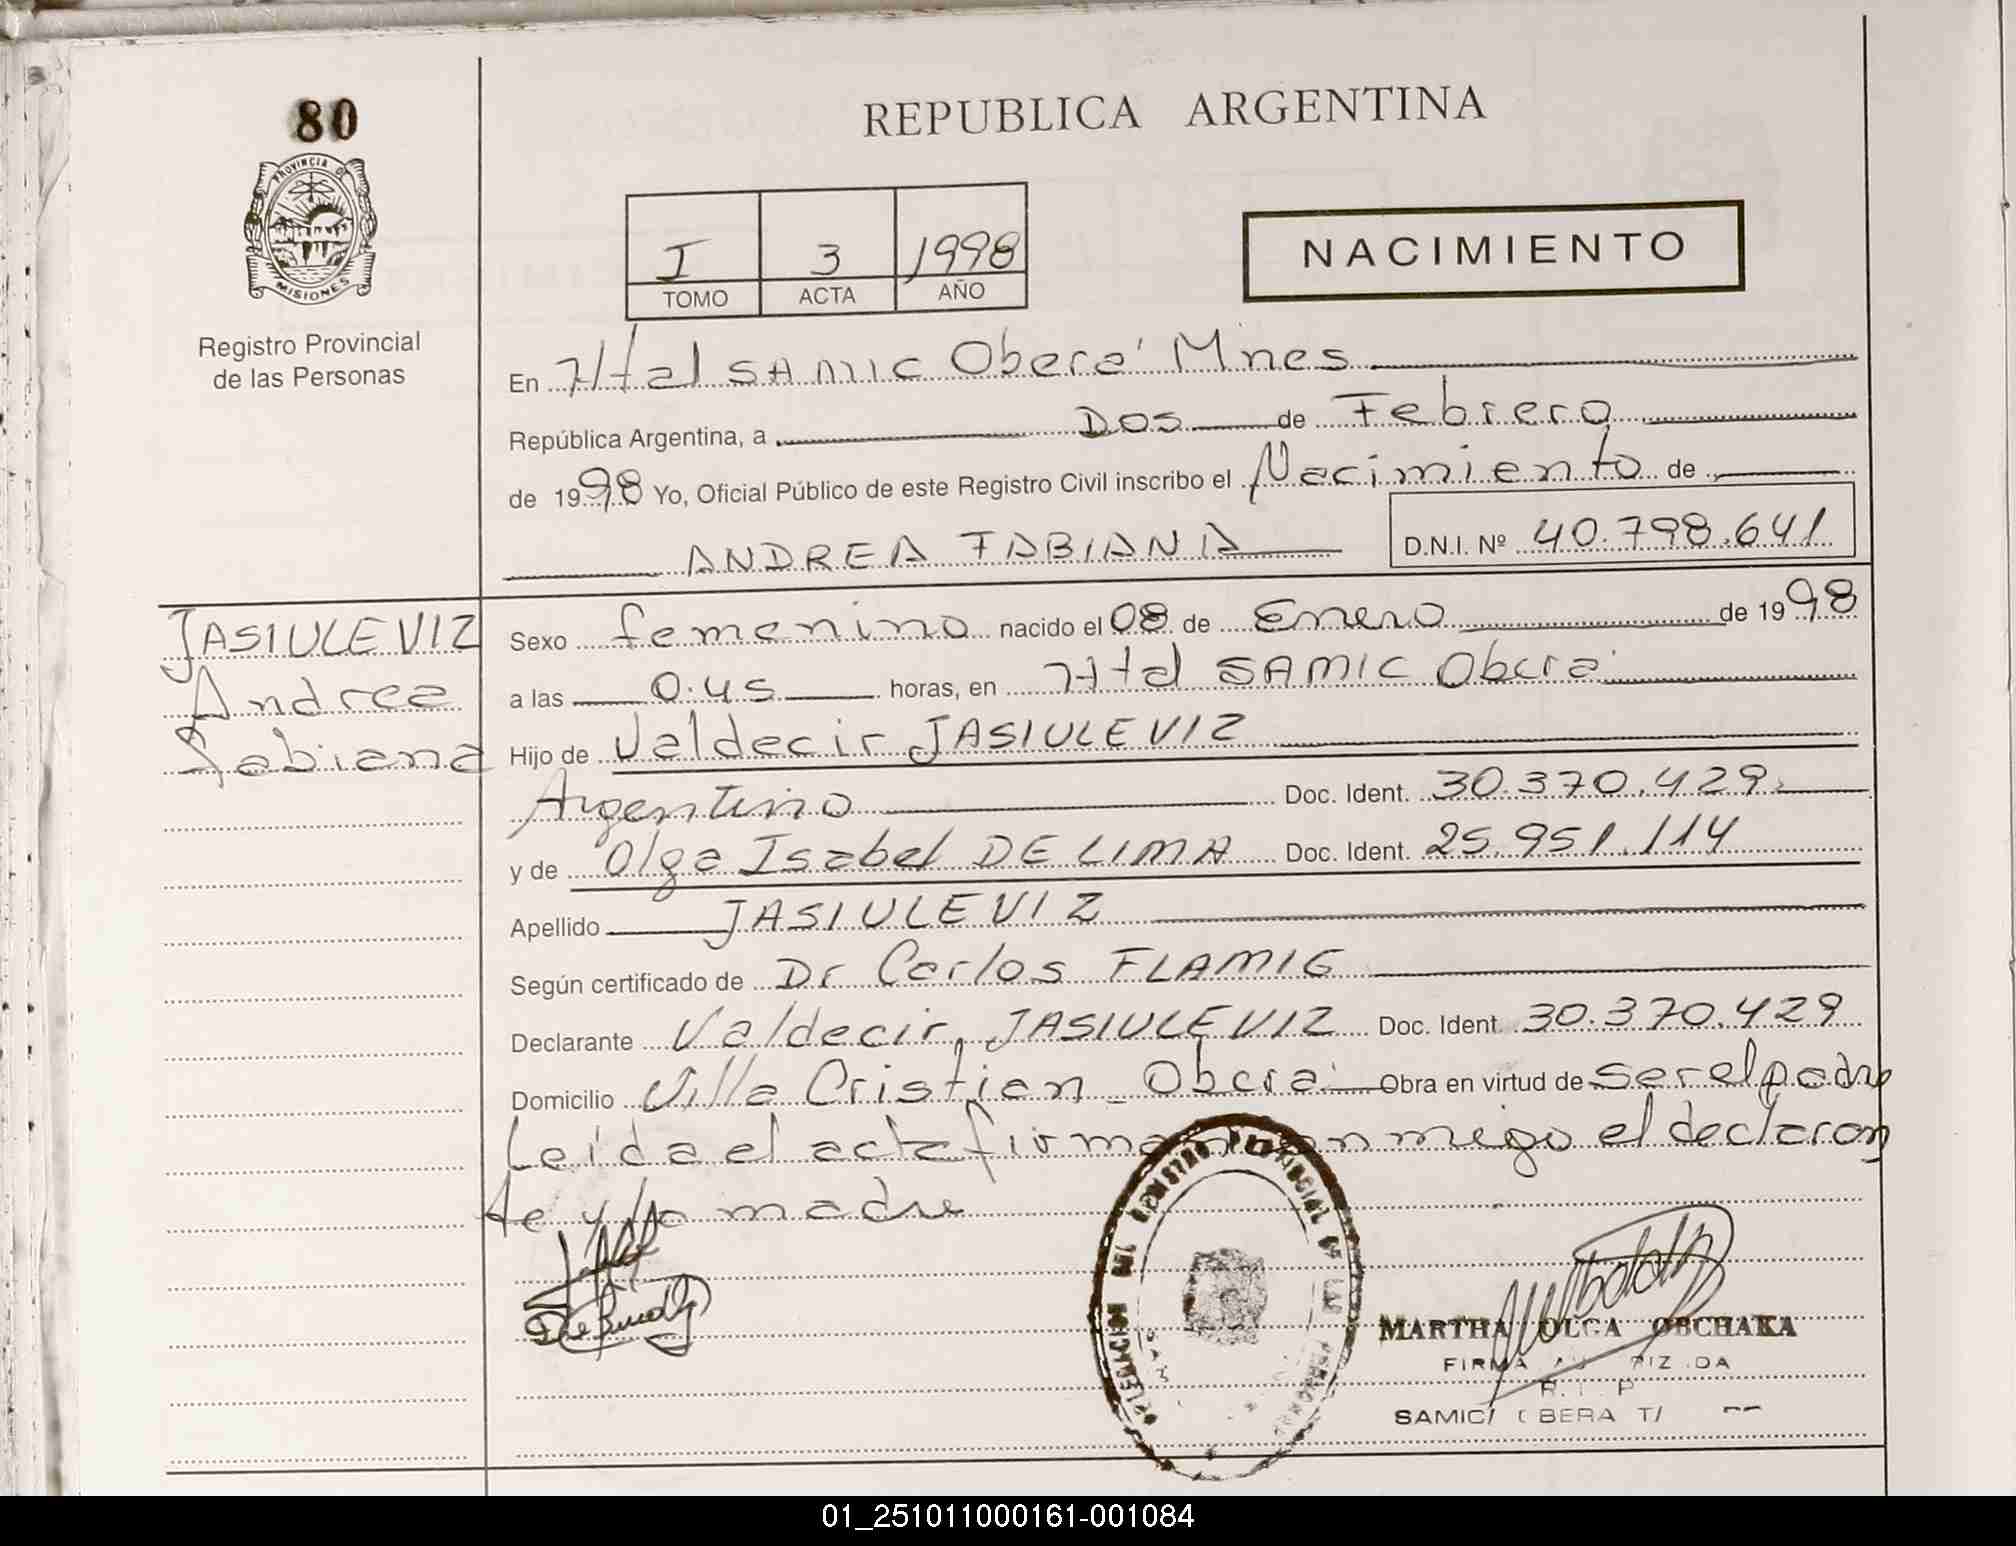 80
PROVINCIA DE
MISIONES
Registro Provincial
de las Personas
REPUBLICA ARGENTINA
I 3 1998
TOMO ACTA AÑO
NACIMIENTO
En Htal SAMIC Oberá Mnes
República Argentina, a Dos de Febrero
de 1998 Yo, Oficial Público de este Registro Civil inscribo el Nacimiento de
ANDREA FABIANA D.N.I. Nº 40.798.641
JASIULEVIZ
Andrea
Fabiana
Sexo femenino nacido el 08 de Enero de 1998
a las 0.45 horas, en Htal SAMIC Oberá
Hijo de Valdecir JASIULEVIZ
Argentino Doc. Ident. 30.370.429
y de Olga Isabel DE LIMA Doc. Ident. 25.951.114
Apellido JASIULEVIZ
Según certificado de Dr Carlos FLAMIG
Declarante Valdecir JASIULEVIZ Doc. Ident. 30.370.429
Domicilio Villa Cristian - Oberá Obra en virtud de ser el padre
Leída el acta firman conmigo el declaran
te y la madre
DELEGACION DEL REGISTRO PROVINCIAL DE LAS PERSONAS
MARTHA OLGA OBCHAKA
FIRMA
R. P
SAMIC OBERA
01_251011000161-001084